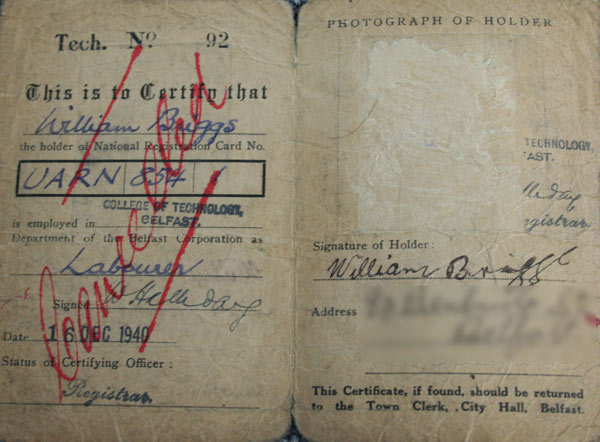 Tech. No 92
This is to Certify that
William Briggs
the holder of National Registration Card No.
UARN 854 1
COLLEGE OF TECHNOLOGY,
BELFAST.
is employed in
Department of the Belfast Corporation as
Labourer
Signed Holleday
Date 16 DEC 1940
Status of Certifying Officer :
Registrar.
Cancelled
PHOTOGRAPH OF HOLDER
TECHNOLOGY,
AST.
gistrar.
Signature of Holder :
William Briggs
Address
This Certificate, if found, should be returned
to the Town Clerk, City Hall, Belfast.